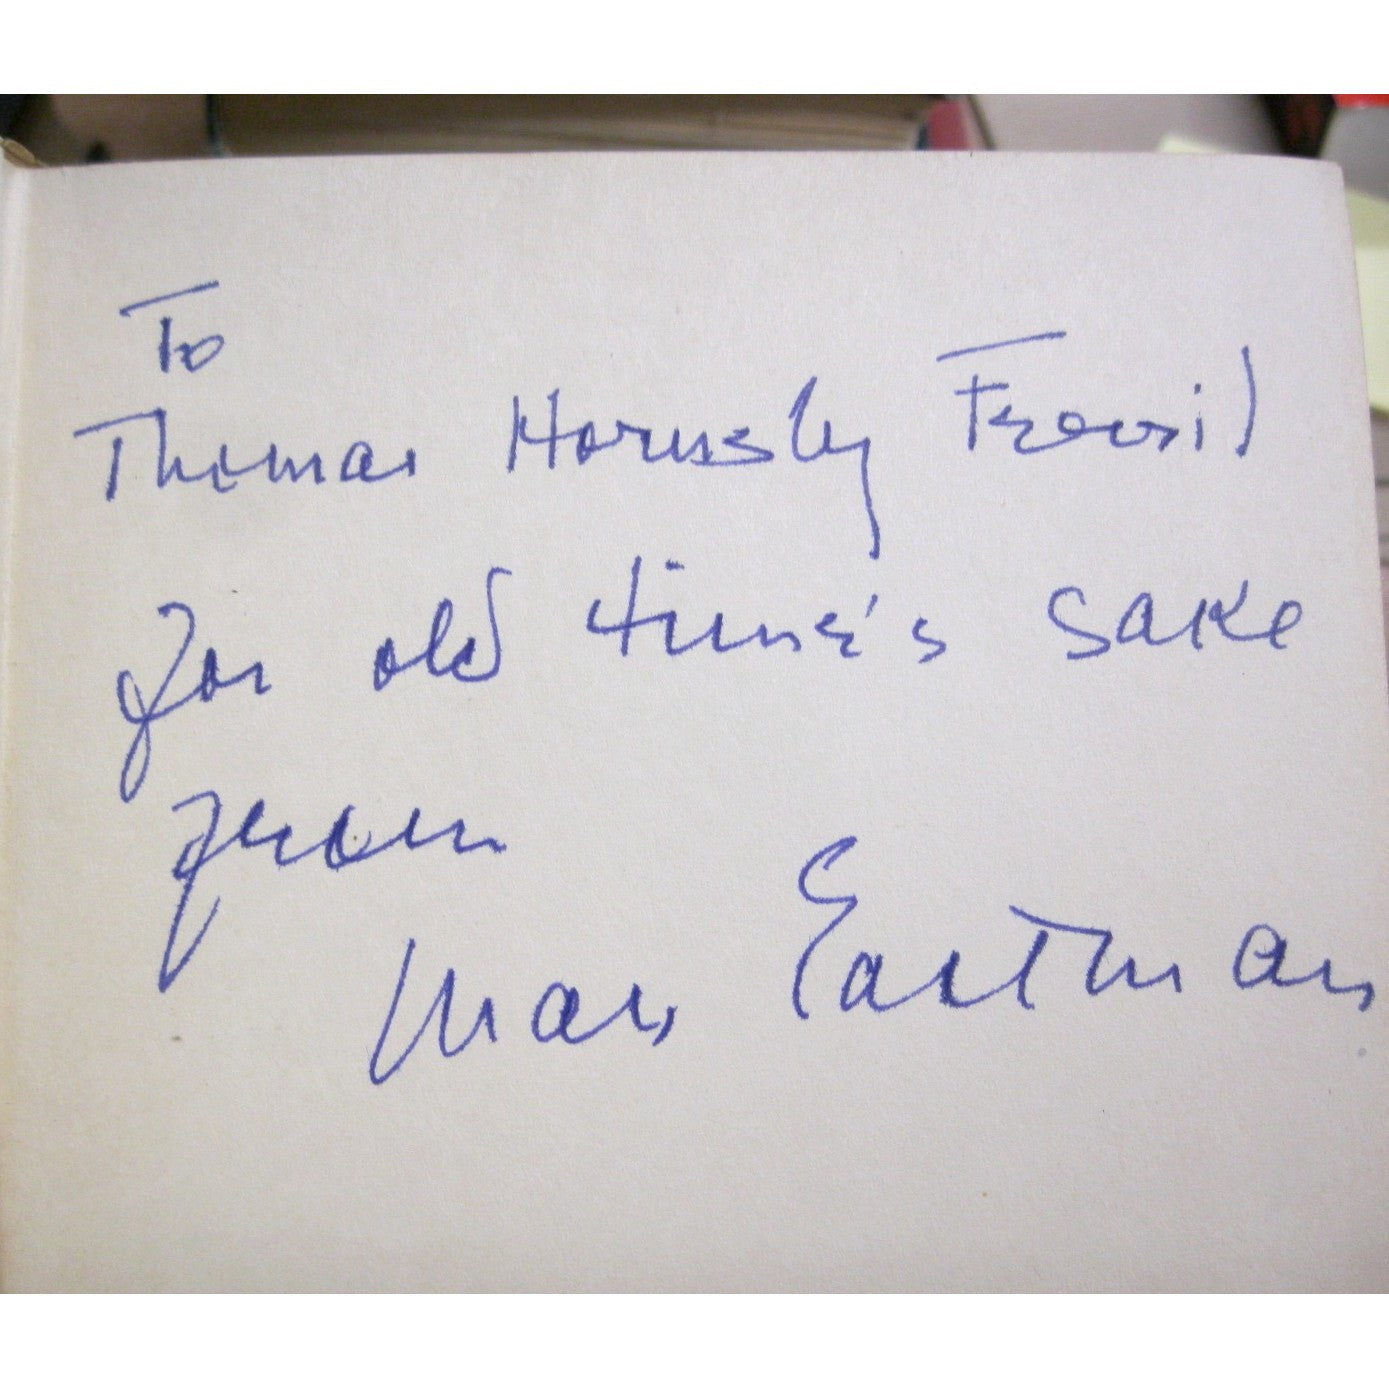 To
Thomas Hornsby Ferril
for old time's sake
from
Max Eastman